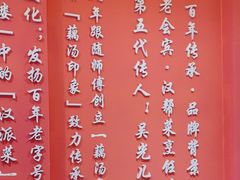 百年传承·品牌背景
老会宾·汉帮菜烹饪
第五代传人：吴光儿
年跟随师傅创立一藕汤
『藕汤印象』致力传承
化；发扬百年老字号
一中的『汉派菜』